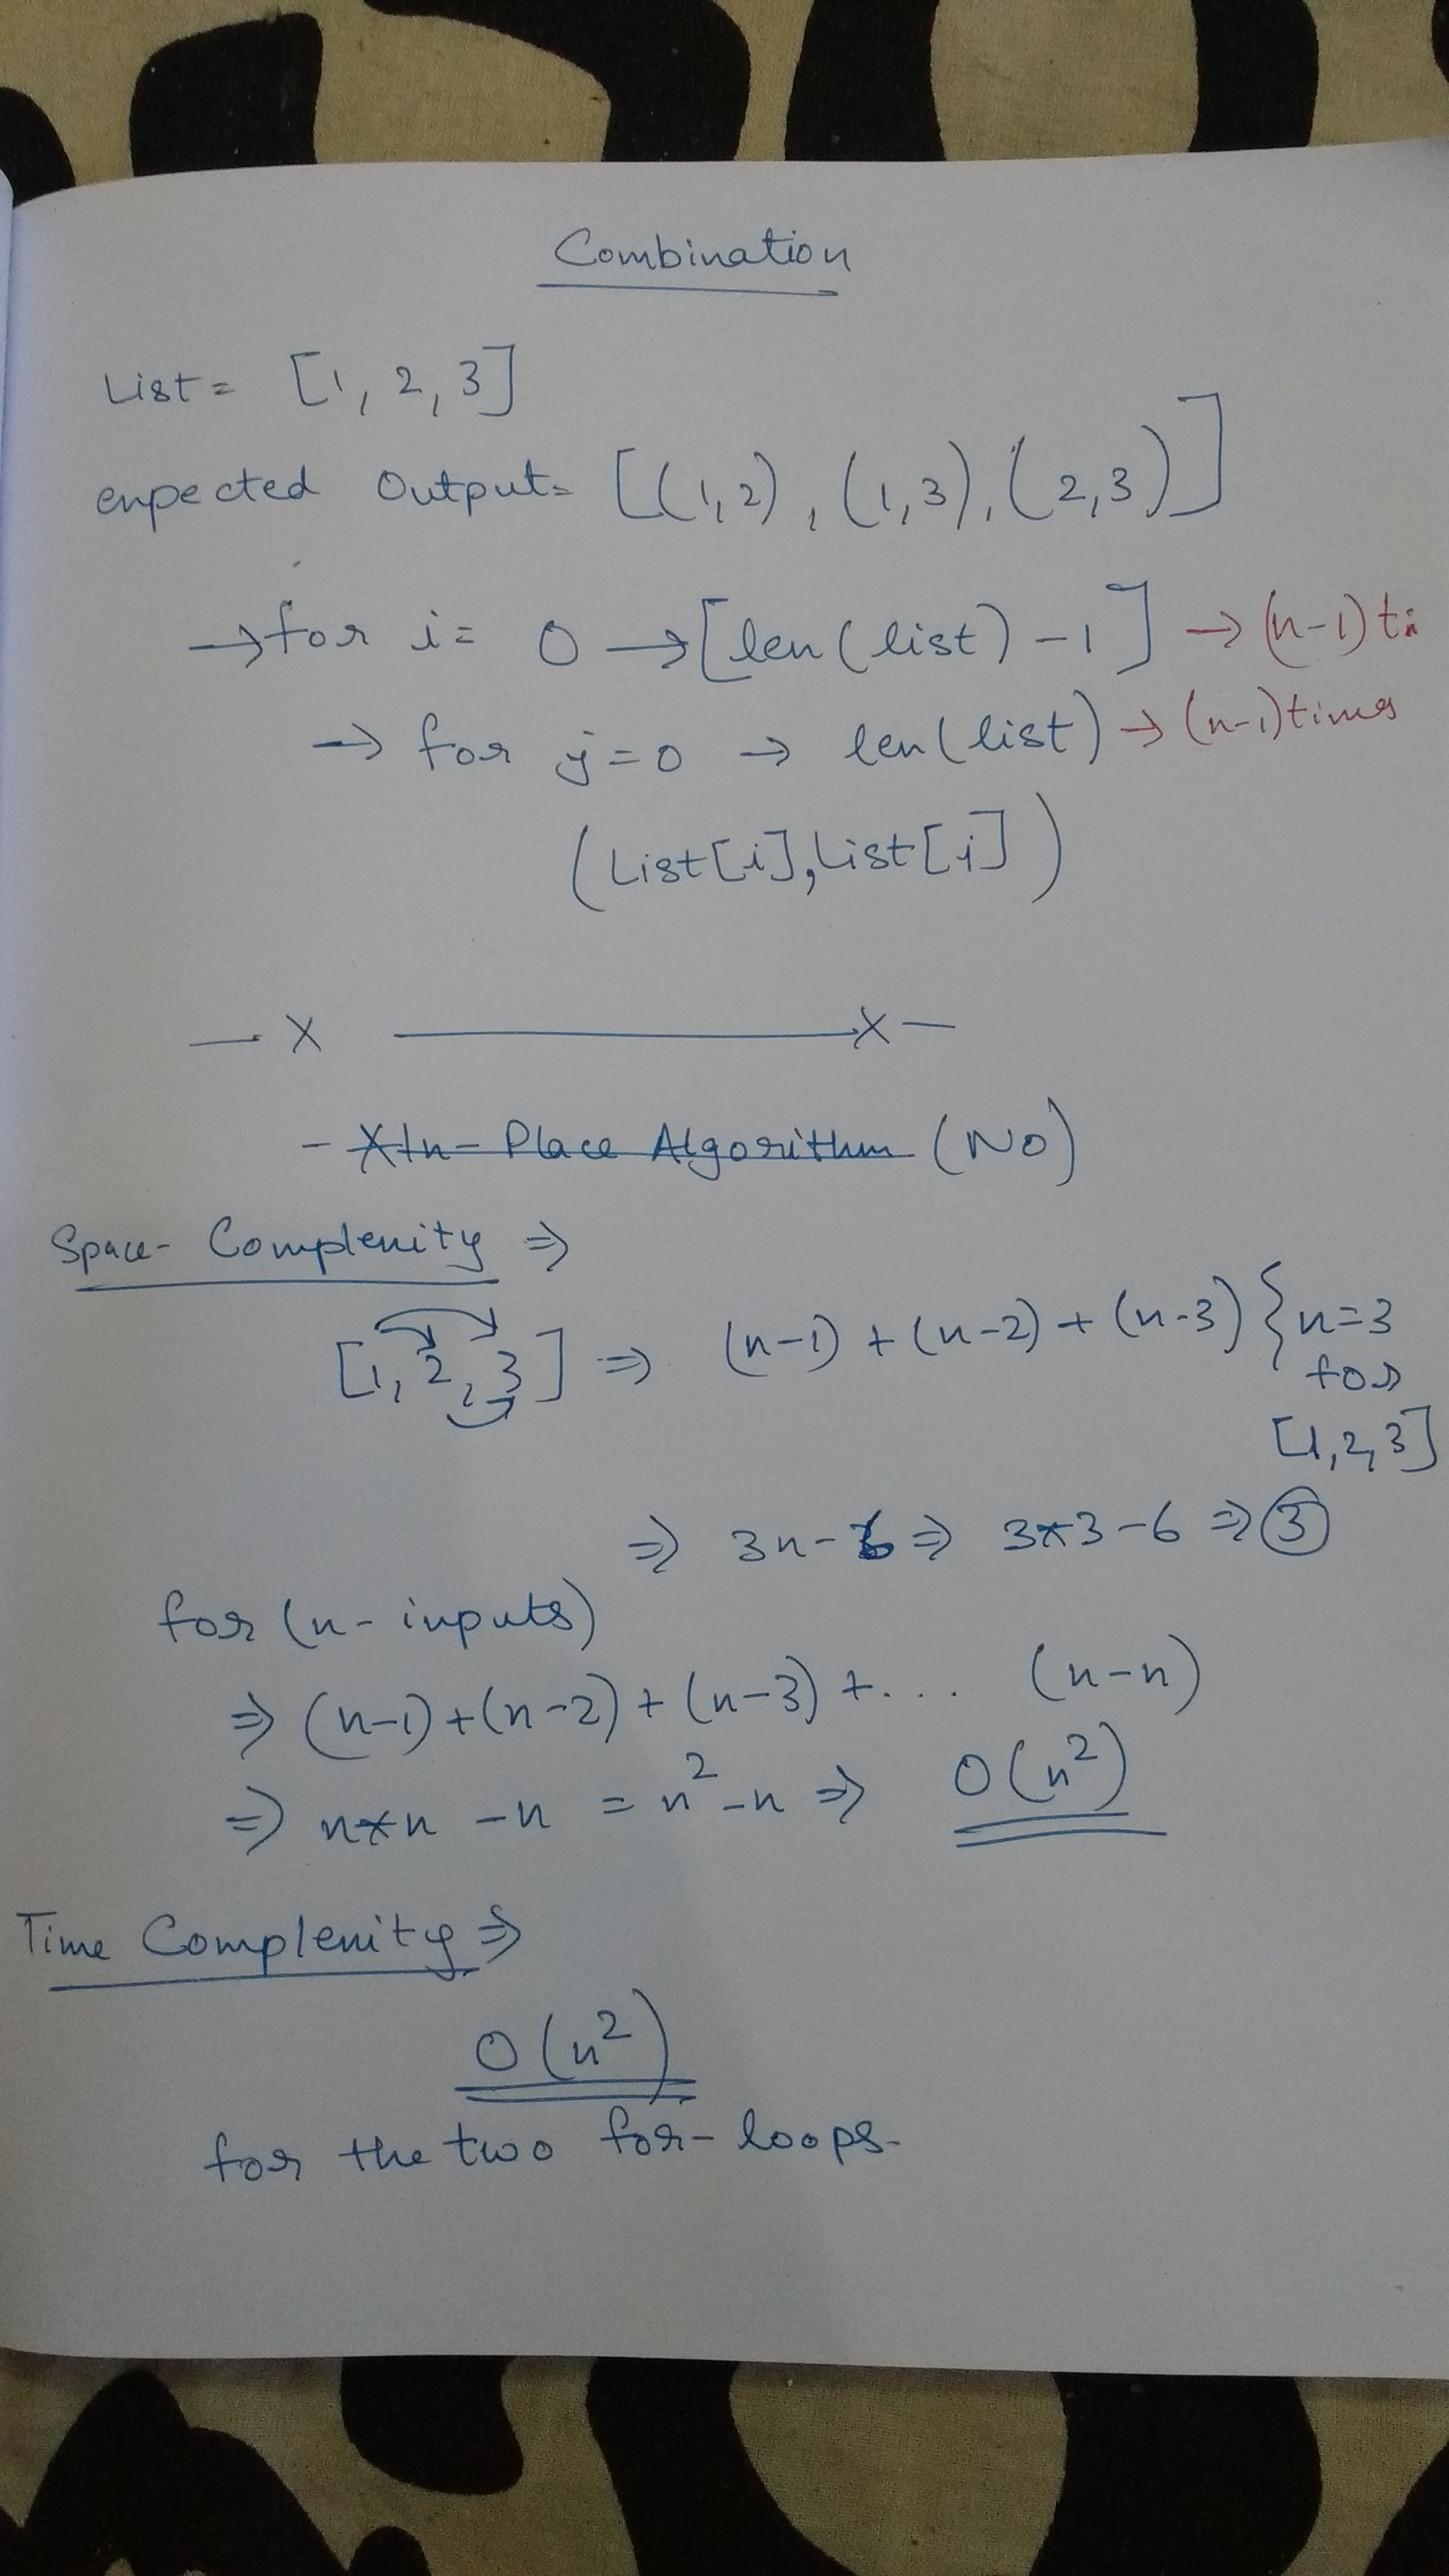 Combination
List = [1, 2, 3]
expected Output = [(1,2), (1,3), (2,3)]
→ for i = 0 → [len(list) - 1] → (n-1) ti
→ for j = 0 → len(list) → (n-1) times
(List[i], List[j])
— X ——— X —
- X In-Place Algorithm (NO)
Space-Complexity ⇒
[1, 2, 3] ⇒ (n-1) + (n-2) + (n-3) { n=3
for
[1,2,3]
⇒ 3n - 6 ⇒ 3*3-6 ⇒ 3
for (n-inputs)
⇒ (n-1) + (n-2) + (n-3) + . . . (n-n)
⇒ n*n - n = n² - n ⇒ O(n²)
Time Complexity ⇒
O(n²)
for the two for-loops.